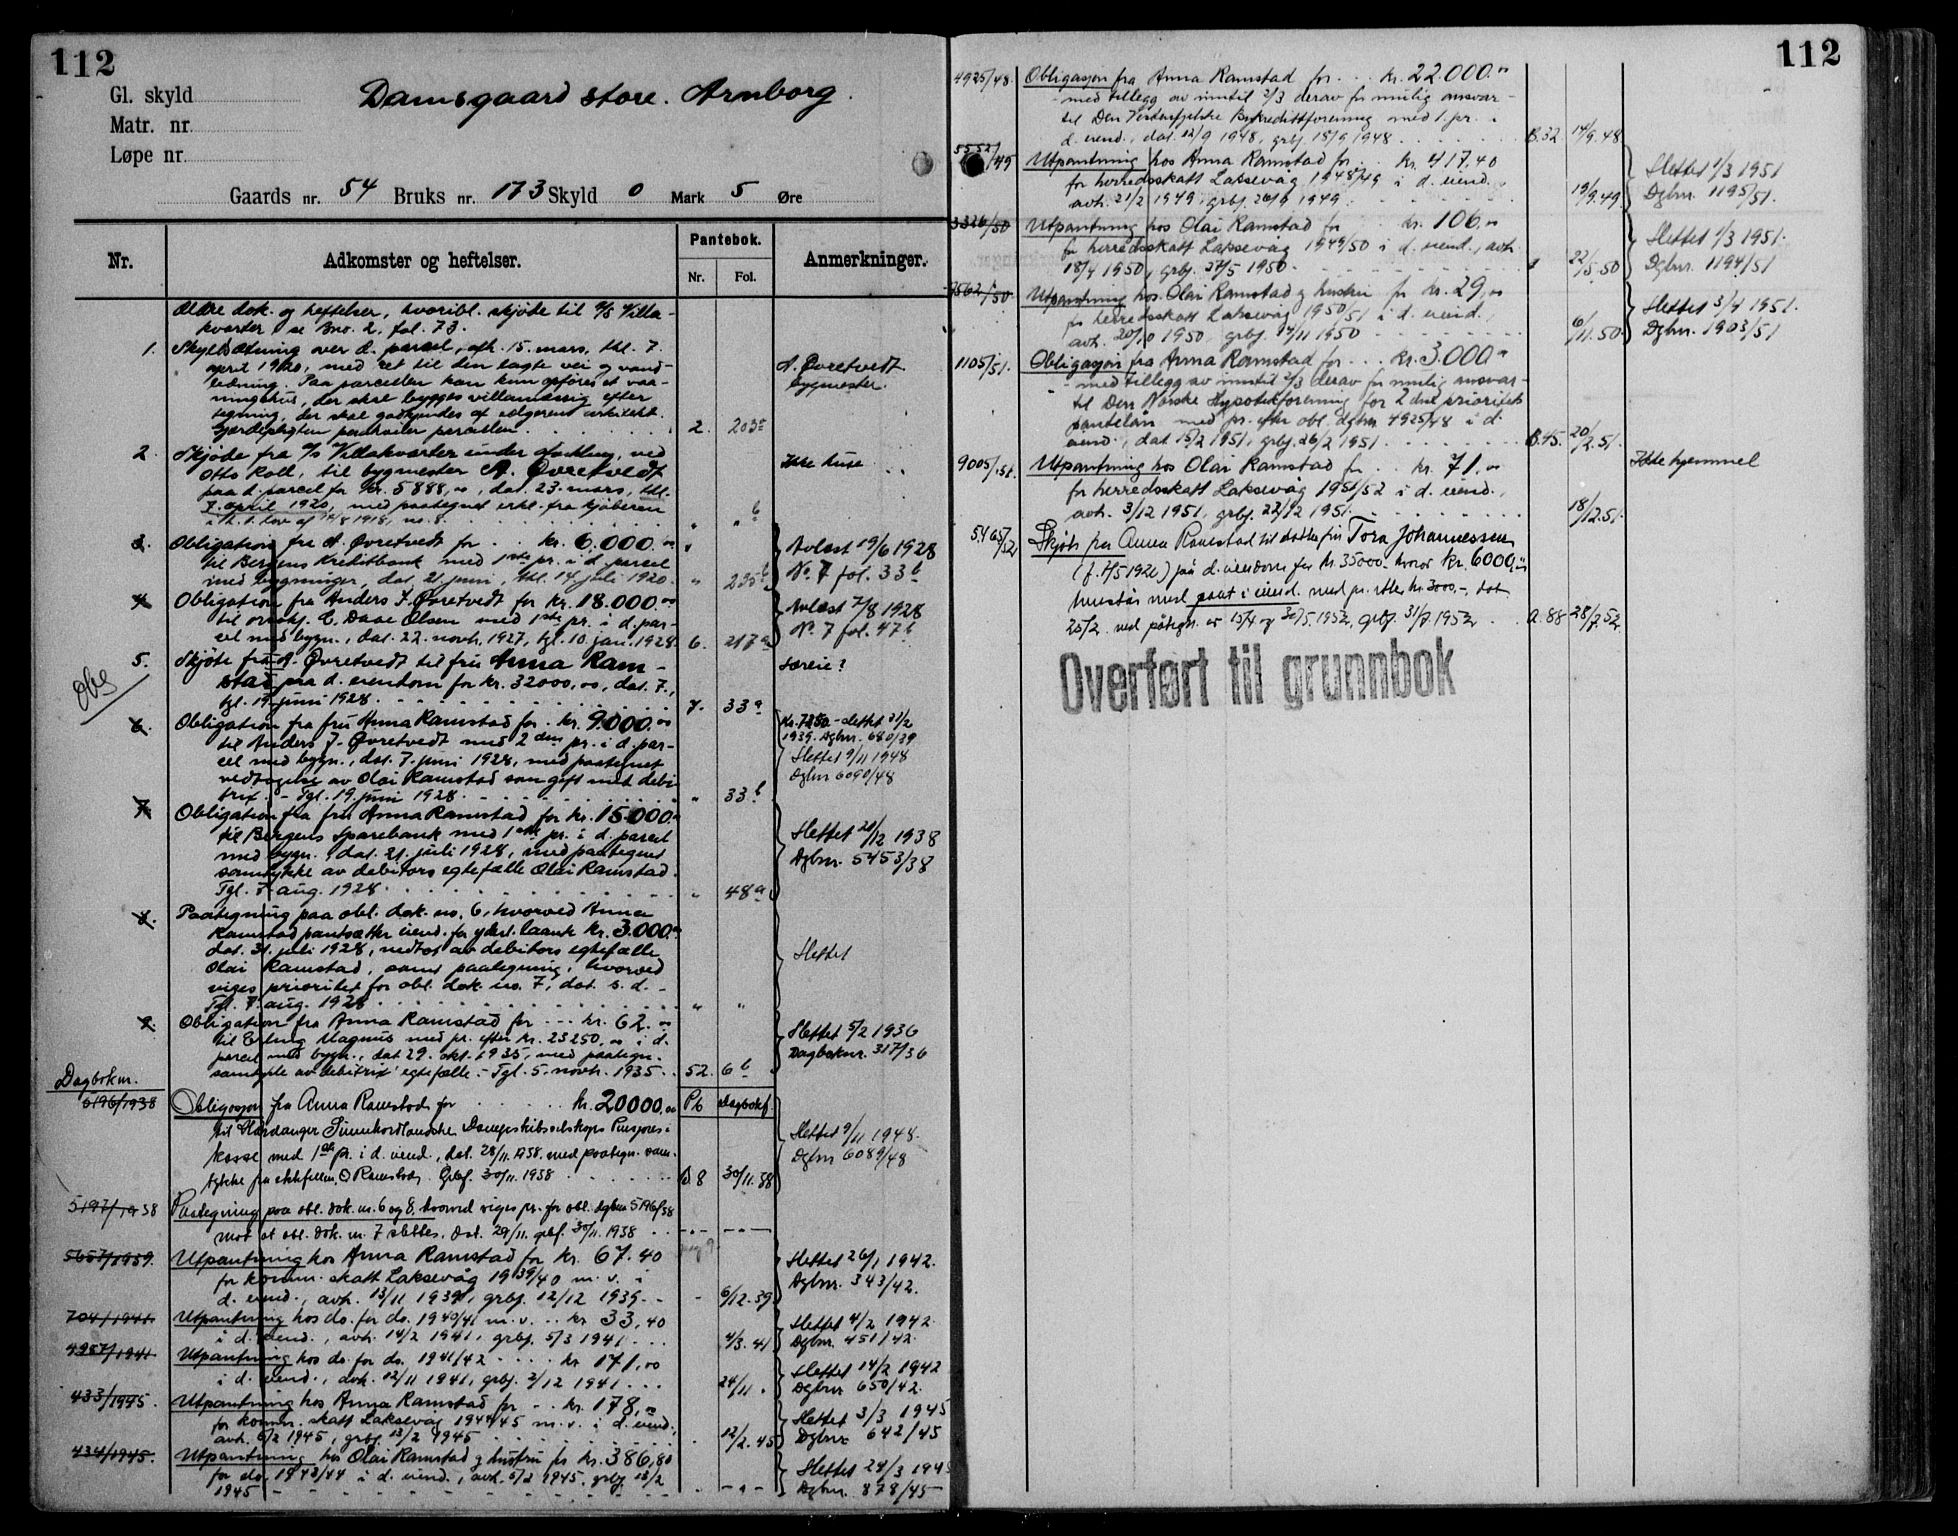 112
Gl. skyld
Matr. nr.
Løpe nr.
Damsgaard store. Arnborg.
Gaards nr. 54 Bruks nr. 173 Skyld 0 Mark 5 Øre
Nr.
Adkomster og heftelser.
Pantebok.
Nr.
Fol.
Anmerkninger.
Ældre dok. og heftelser, hvoribl. skjøde til A/S Villa-
kvarter se Bno. 2, fol. 73.
1. Skyldsætning over d. parcel, afh. 15. mars, thl. 7.
april 1920, med ret til den lagte vei og vand-
ledning. Paa parcellen kan kun opføres et vaa-
ningshus, der skal bygges villamæssig efter
tegning, der skal godkjendes af sælgerens arkitekt.
Gjærdepligten paahviler parcellen. 2. 203
A. Øvretvedt
bygmester.
2. Skjøde fra A/S Villakvarter under afvikling, ved
Otto Koll, til bygmester A. Øvretvedt
paa d. parcel for kr. 5888,00, dat. 23. mars, thl.
7. april 1920, med paategnet erkl. fra kjøberen
i h. t. lov af 1918, no. 8. " " b
Ikke huse
3. Obligation fra A. Øvretvedt for kr. 6.000.00
til Bergens Kreditbank med 1ste pr. i d. parcel
med bygninger, dat. 21. juni, thl. 14. juli 1920. "
Avlæst 19/6 1928
No. 7 fol. 33b
4. Obligation fra Anders J. Øvretvedt for kr. 18.000.00
til E. Daae Olsen med 1ste pr. i d. par-
cel med bygn., dat. 22. novb. 1927, tgl. 10. jan. 1928. 6. 217a
Avlæst 7/8 1928
No. 7 fol. 47b
Obs
5. Skjøte fra A. Øvretvedt til fru Anna Ram-
stad paa d. eiendom for kr. 32000,00, dat. 7.,
tgl. 19. juni 1928. 7. 33a
Særeie?
6. Obligation fra fru Anna Ramstad for kr. 9.000.00
til Anders J. Øvretvedt med 2den pr. i d. par-
cel med bygn., dat. 7. juni 1928, med paategnet
vedtagelse av Olai Ramstad som gift med debi-
trix. - Tgl. 19. juni 1928. " 33b
Kr. 7250 - slettet 21/2
1939. Dgbnr. 680/39
Slettet 9/11 1948
Dgbnr 6090/48
7. Obligation fra fru Anna Ramstad for kr. 15.000.00
til Bergens Sparebank med 1ste pr. i d. parcel
med bygn., dat. 21. juli 1928, med paategnet
samtykke av debitors egtefælle Olai Ramstad.
Tgl. 7. aug. 1928. " 48a
Slettet 20/12 1938
Dgbnr. 5453/38
8. Paategning paa obl. dok. no. 6, hvorved Anna
Ramstad pantsætter eiend. for yderl. laant kr. 3.000.00
dat. 31. juli 1928, vedtat av debitors egtefælle
Olai Ramstad, samt paategning, hvorved
viges prioritet for obl. dok. no. 7, dat. s. d. -
Tgl. 7. aug. 1928 " "
Slettet
9. Obligation fra Anna Ramstad for kr. 62.00
til Erling Magnus med pr. efter kr. 23250,00 i d.
parcel med bygn., dat. 29. okt. 1935, med paategn.
samtykke av debitrix' egtefælle. - Tgl. 5. novb. 1935. 52. 6b
Slettet 5/2 1936
Dagboknr. 317/36
Dagboknr.
5196/1938 Obligasjon fra Anna Ramstad for kr. 20000,00 Pb dagbokf.
til Hardanger Sunnhordlandske Dampskibsselskaps Pensjons-
kasse med 1ste pr. i d. eiend., dat. 28/11 1938 med paategn. sam-
tykke fra ektefellen O Ramstad. Grbf. 30/11. 1938 B 8 30/11.38
Slettet 9/11 1948.
Dgbnr 6089/48
5197/1938 Paategning paa obl. dok. nr. 6 og 8, hvorved viges pr. for obl. dgbnr 5196/38
mot at obl. dok. nr. 7 slettes. Dat. 29/11. grbf. 30/11. 1938
5657/1939. Utpantning hos Anna Ramstad for kr. 67.40
for komm. skatt Laksevåg 1939/40 m. v. i
d. eiend., avh. 13/11 1939, grbf. 12/12 1939. - 6/12.39
Slettet 26/1 1942.
Dgbnr. 343/42.
704/1941. Utpantning hos do. for do. 1940/41 m. v. kr 33,40
i d. eiend., avh. 14/2 1941, grbf. 5/3 1941 4/3. 41
Slettet 4/2 1942
Dgbnr. 451/42.
4957/1941 Utpantning hos do. for do. 1941/42 kr 171,00
i d. eiend., avh. 12/11 1941, grbf. 2/12 1941 24/11.
Slettet 14/2 1942
Dgbnr 650/42.
433/1945. Utpantning hos Anna Ramstad for kr. 178,00
for komm. skatt Laksevåg 1944/45 m. v. i d. eiend.,
avh. 6/2 1945, grbf 13/2 1945 12/2.45
Slettet 3/3 1945
Dgbnr 642/45
434/1945. Utpantning hos Olai Ramstad og hustru for kr. 386,80
for do. 1943/44 i d. eiend., avh. 6/2 1945, grbf 13/2
1945 - " -
Slettet 24/3 1945
Dgbnr. 878/45
112
4925/48. Obligasjon fra Anna Ramstad for kr. 22.000.00
- med tillegg av inntil 2/3 derav for mulig ansvar -
til Den Vestenfjelske Bykredittforening med 1. pr. i
d. eiend., dat. 12/9 1948, grbf 18/9 1948 B.32 14/9.48
5552/49 Utpantning hos Anna Ramstad for kr. 417.40
for herredsskatt Laksevåg 1948/49 i d. eiend.
avh. 21/2 1949, grbf. 26/9 1949. 19/9.49
Slettet 1/3 1951
Dgbnr. 1195/51.
3326/50 Utpantning hos Olai Ramstad for kr. 106.00
for herredsskatt Laksevåg 1949/50 i d. eiend., avh.
18/4 1950, grbf. 27/5 1950. 22/5.50
Slettet 1/3 1951.
Dgbnr. 1194/51
7562/50 Utpantning hos Olai Ramstad og hustru for kr. 29,00
for herredsskatt Laksevåg 1950/51 i d. eiend.,
avh. 20/10 1950, grbf. 14/11 1950 6/11.50
Slettet 3/4 1951.
Dgbnr. 1903/51
1105/51. Obligasjon fra Anna Ramstad for kr. 3.000.00
- med tillegg av inntil 2/3 derav for mulig ansvar -
til Den Norske Hypotekforening for 2 dres prioritets
pantelån med pr. efter obl. dgbnr. 4925/48 i d.
eiend., dat 15/2 1951, grbf. 26/2 1951. B.45. 20/2.51.
9005/51. Utpantning hos Olai Ramstad for kr. 71,00
for herredsskatt Laksevåg 1951/52 i d. eiend.,
avh. 3/12 1951, grbf. 22/12 1951. 18/12.51.
Ikke hjemmel
5465/52 Skjøte fra Anna Ramstad til datter fru Tora Johannessen
(f. 1/5 1920) på d. eiendom for kr. 35000 hvorav kr. 6000,00
henstår med pant i eiend. med pr. etter kr. 3000.-, dat
25/2 med påtegn. av 15/4 og 30/5 1952, grbf. 31/7 1952 A. 88 28/7.52
Overført til grunnbok